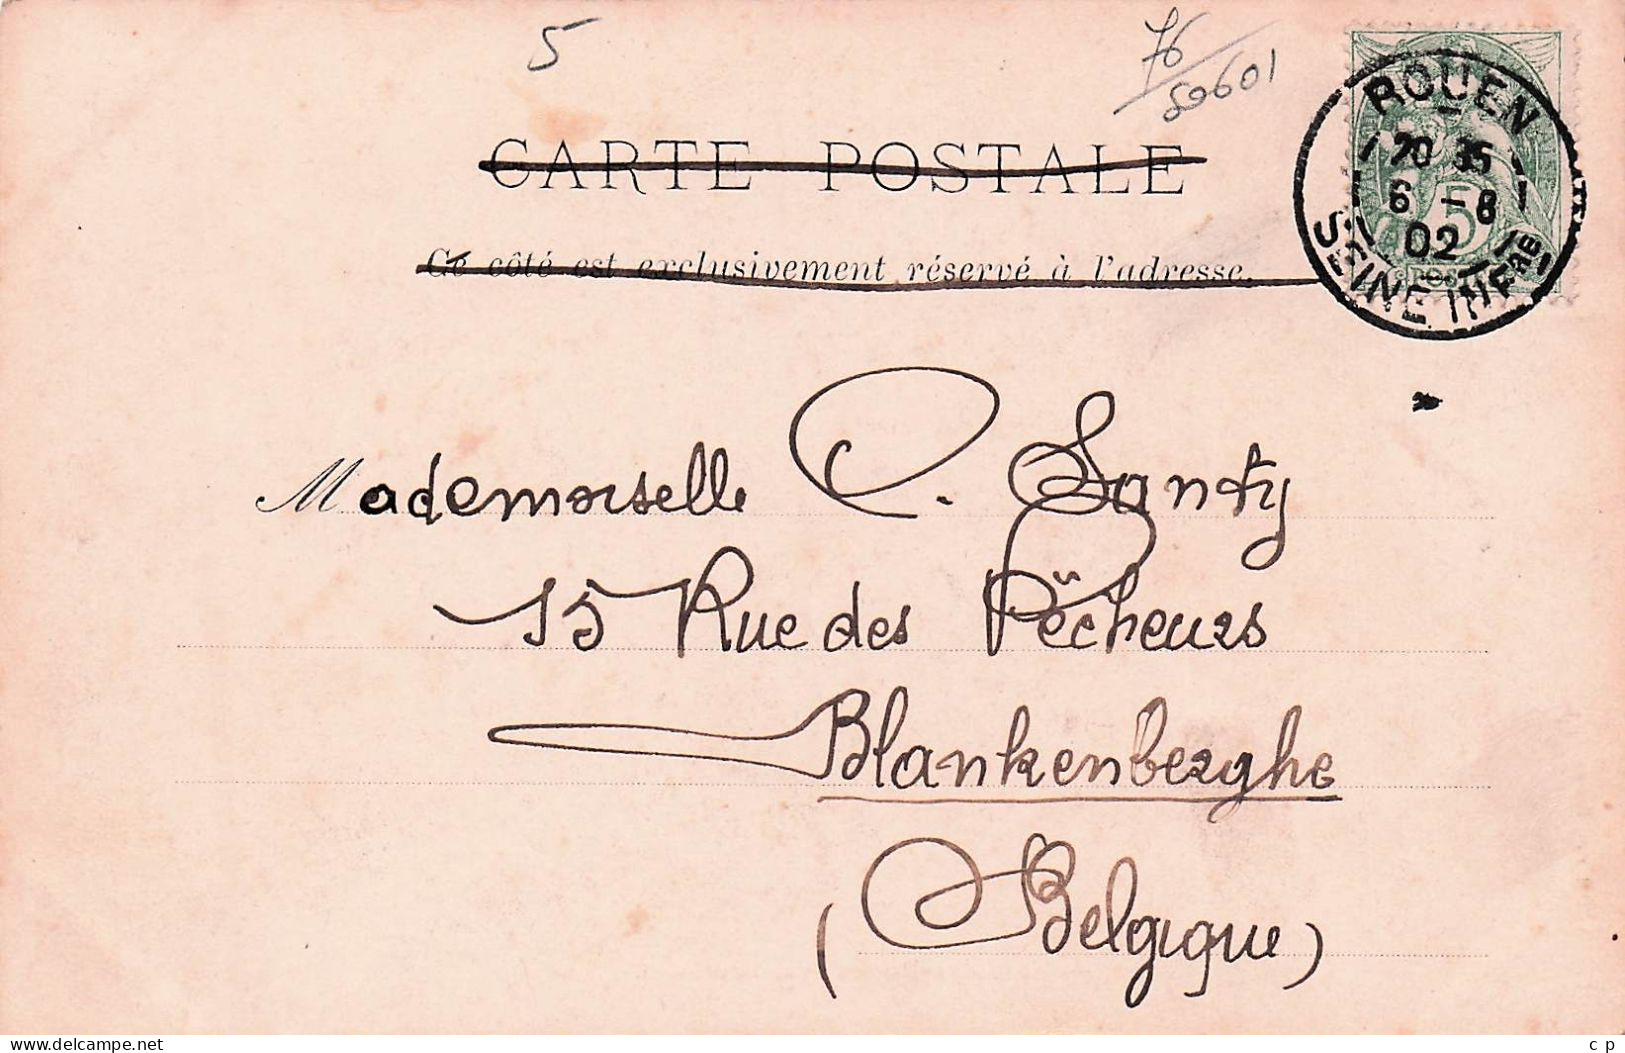 5
76
59601
CARTE POSTALE
Ce côté est exclusivement réservé à l'adresse.
ROUEN
20 35
6 - 8
02
SEINE INFRE
5
Mademoiselle C. Santy
15 Rue des Pêcheurs
Blankenberghe
(Belgique)
delcampe.net
c p